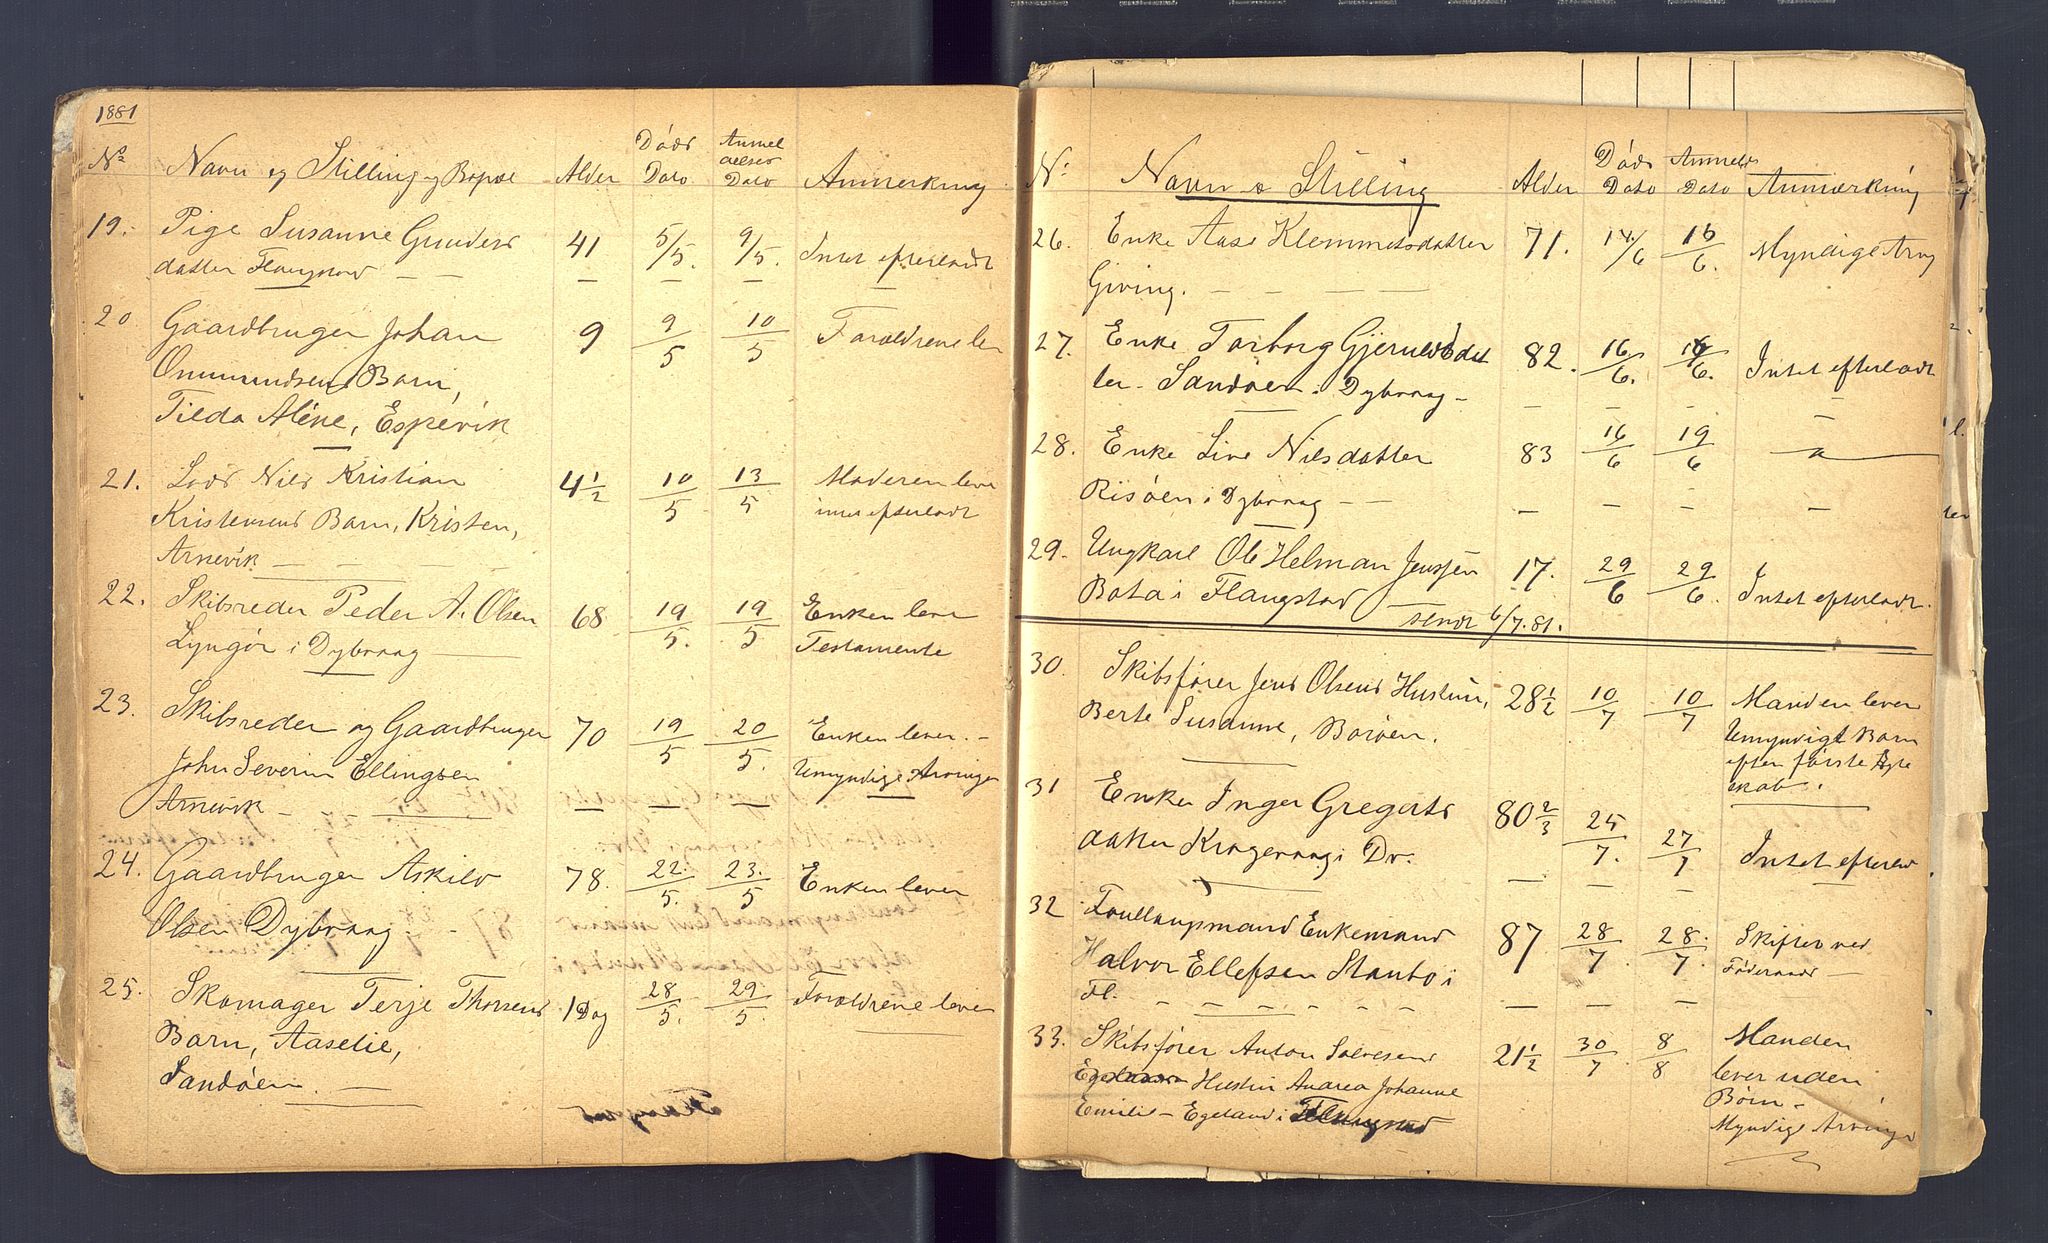 1881
No Navn og Stilling og Bopæl Alder Døds Dato Anmeldelses Dato Anmerkning
19. Pige Susanne Gunders 41 5/5 9/5. Intet efterladt
datter Flangstad — —
20 Gaardbruger Johan 9 9/5 10/5 Forældrene lever
Ommundsens Barn,
Tilda Aléne, Espevik
21. Lods Nils Kristian 4 1/2 10/5 13/5 Moderen lever
Kristensens Barn, Kristen, intet efterladt
Arnevik — — —
22. Skibsreder Peder A. Olsen 68 19/5. 19/5 Enken lever
Lyngør i Dybvaag — Testamente
23. Skibsreder og Gaardbruger 70 19/5 20/5. Enken lever. –
John Severin Ellingsen Umyndige Arvinger
Arnevik — — — —
24. Gaardbruger Askild 78. 22./5. 23./5 Enken lever
Olsen Dybvaag. -
25. Skomager Terje Thorsens 1 Dag 28/5. 29/5. Forældrene lever
Barn, Aaselie,
Sandøen. —
No. Navn & Stilling Alder Døds Dato Anmelds Dato Anmærkning
26. Enke Aase Klemmetsdatter 71. 14/6 16/6. Myndige Arv
Giving. — — — —
27. Enke Torborg Gjeruldsdat 82. 16/6. 16/6. Intet efterladt
ter - Sandøen i Dybvaag –
28. Enke Live Nilsdatter 83 16/6 19/6 — " —
Risøen i Dybvaag — —
29. Ungkarl Ole Helman Jenssen 17. 29/6 29/6. Intet efterladt.
Bota i Flangstad — sendt 6/7.81.
30 Skibsfører Jens Olsens Hustru, 28 1/2 10/7 10/7 Manden lever
Berte Susanne, Borøen. Umyndigt Barn
efter første Ægte
skab.
31 Enke Inger Gregerts 80 2/3 25/7. 27/7 Intet efterlad
datter Kragevaag i Dv.
32 Foullaugsmand Enkemand 87 28/7. 28./7. Skifter ved
Halvor Ellefsen Staubo i Føderaads —
Fl. — — — — — —
33. Skibsfører Anton Salvesens 21 1/2 30/7. 8/8 Manden
Hustru Andrea Johanne lever uden
Emilie – Egeland i Flangstad Børn –
Myndige Arvinge